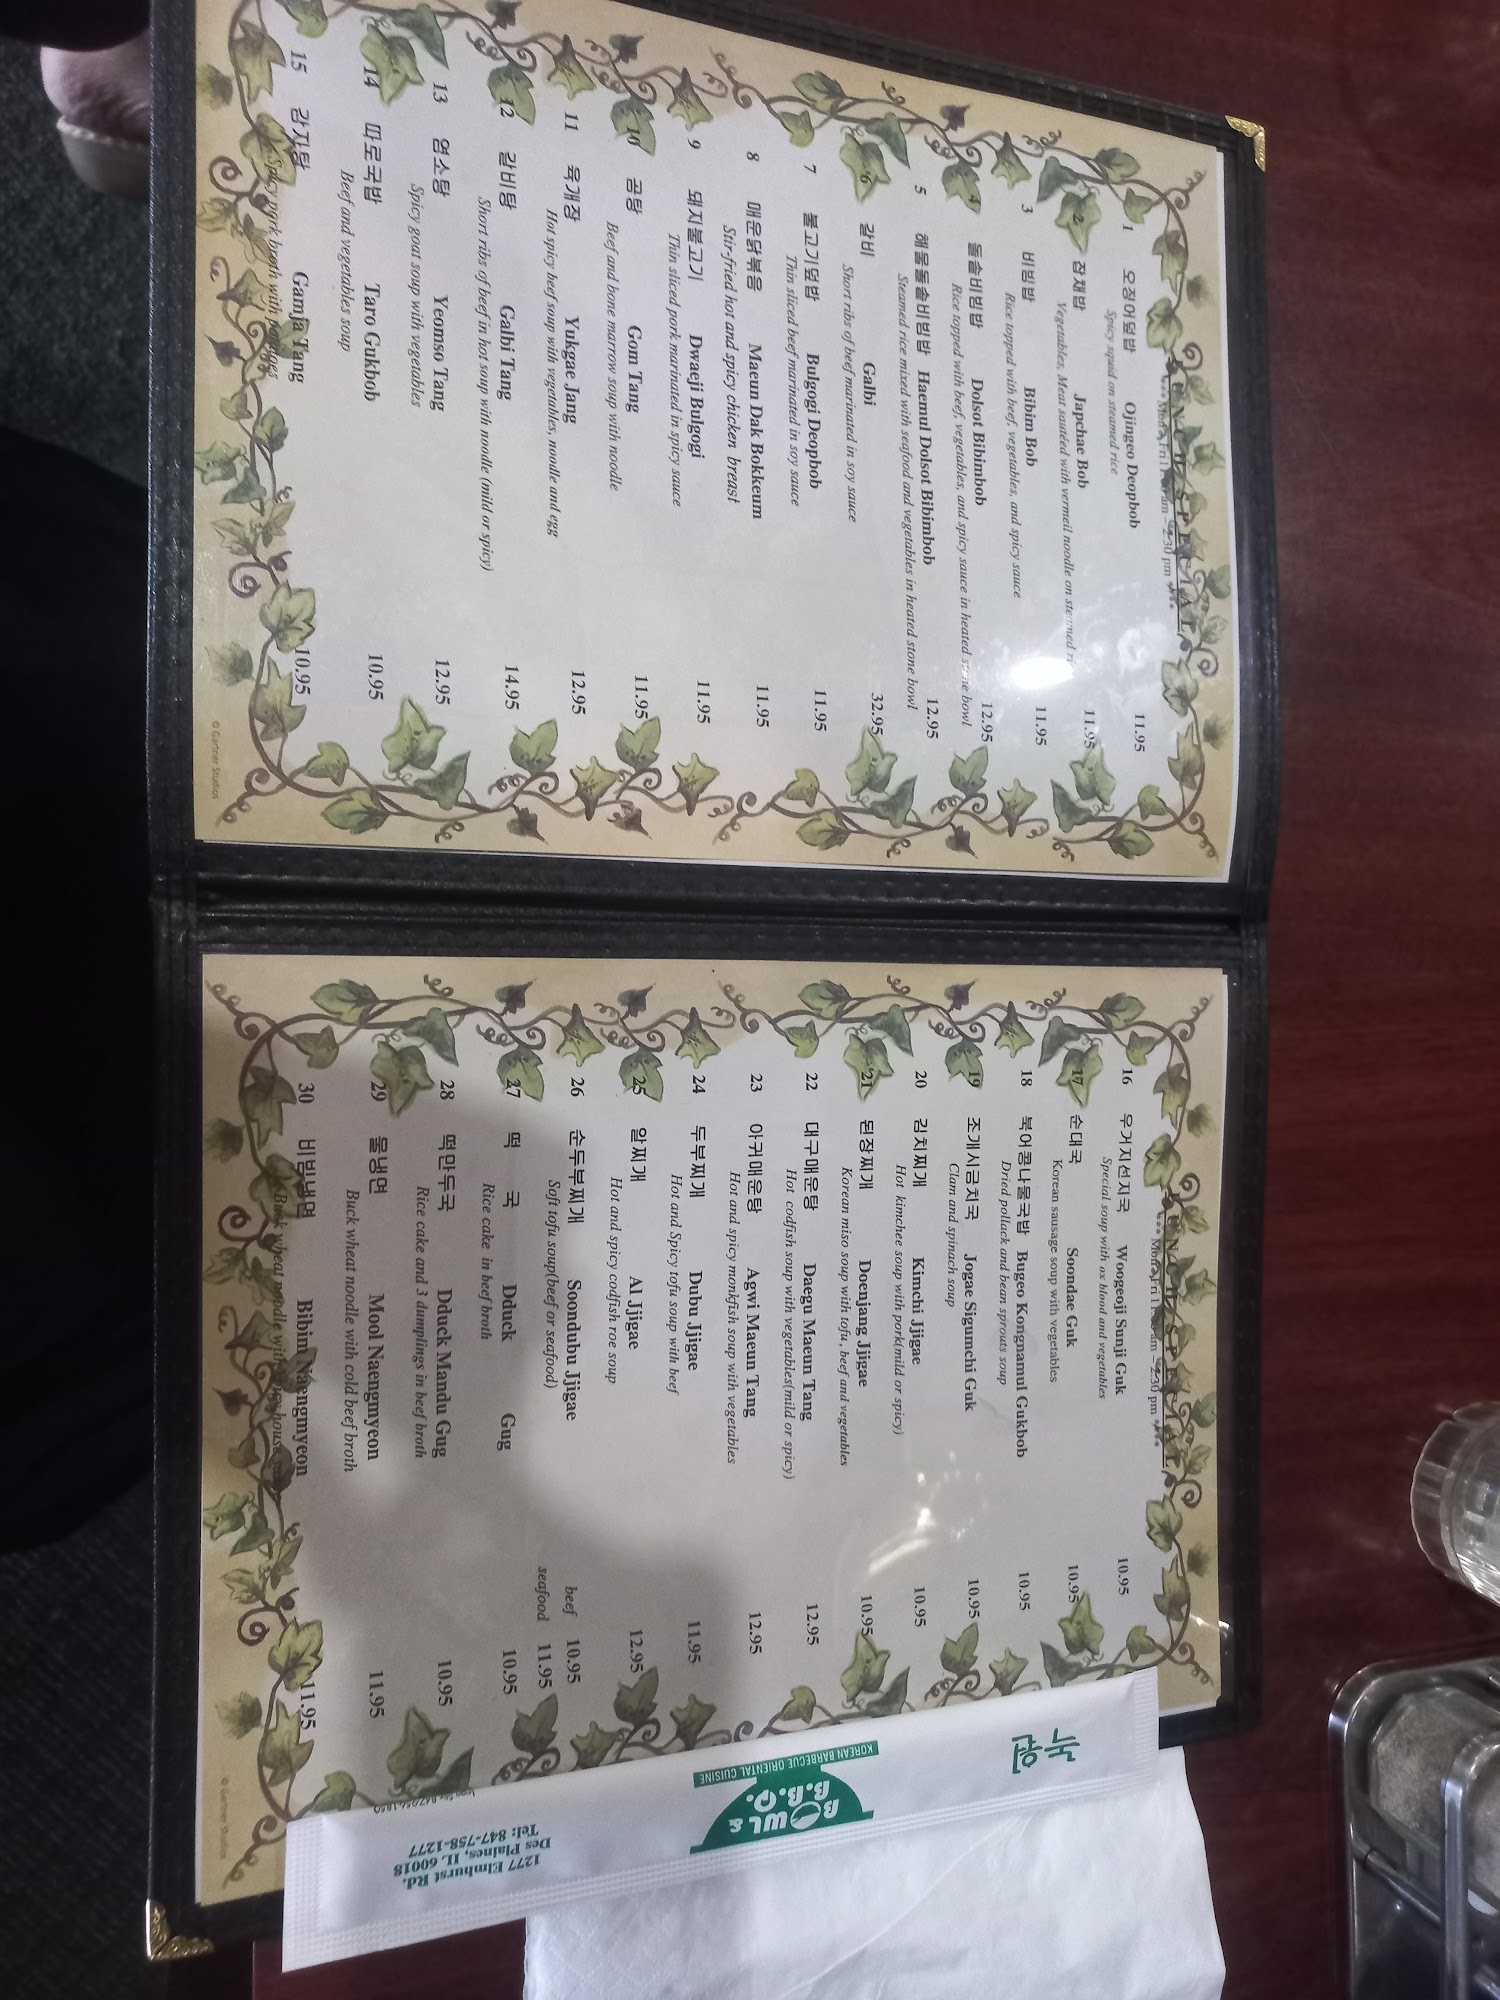 LUNCH SPECIAL
1 오징어덮밥 Ojingeo Deopbob 11.95
Spicy squid on steamed rice
2 잡채밥 Japchae Bob 11.95
Vegetables, Meat sautéed with vermeil noodle on steamed
3 비빔밥 Bibim Bob 11.95
Rice topped with beef, vegetables, and spicy sauce
4 돌솥비빔밥 Dolsot Bibimbob 12.95
Rice topped with beef, vegetables, and spicy sauce in heated stone bowl
5 해물돌솥비빔밥 Haemul Dolsot Bibimbob 12.95
Steamed rice mixed with seafood and vegetables in heated stone bowl
6 갈비 Galbi 32.95
Short ribs of beef marinated in soy sauce
7 불고기덮밥 Bulgogi Deopbob 11.95
Thin sliced beef marinated in soy sauce
8 매운닭볶음 Maeun Dak Bokkeum 11.95
Stir-fried hot and spicy chicken breast
9 돼지불고기 Dwaeji Bulgogi 11.95
Thin sliced pork marinated in spicy sauce
10 곰탕 Gom Tang 11.95
Beef and bone marrow soup with noodle
11 육개장 Yukgae Jang 12.95
Hot spicy beef soup with vegetables, noodle and egg
12 갈비탕 Galbi Tang 14.95
Short ribs of beef in hot soup with noodle (mild or spicy)
13 염소탕 Yeomso Tang 12.95
Spicy goat soup with vegetables
14 따로국밥 Taro Gukbob 10.95
Beef and vegetables soup
15 감자탕 Gamja Tang 10.95
Spicy pork broth with
© Gartner Studios
LUNCH SPECIAL
16 우거지선지국 Woogeoji Sunji Guk 10.95
Special soup with ox blood and vegetables
17 순대국 Soondae Guk 10.95
Korean sausage soup with vegetables
18 북어콩나물국밥 Bugeo Kongnamul Gukbob 10.95
Dried pollack and bean sprouts soup
19 조개시금치국 Jogae Sigumchi Guk 10.95
Clam and spinach soup
20 김치찌개 Kimchi Jjigae 10.95
Hot kimchee soup with pork(mild or spicy)
21 된장찌개 Doenjang Jjigae 10.95
Korean miso soup with tofu, beef and vegetables
22 대구매운탕 Daegu Maeun Tang 12.95
Hot codfish soup with vegetables(mild or spicy)
23 아귀매운탕 Agwi Maeun Tang 12.95
Hot and spicy monkfish soup with vegetables
24 두부찌개 Dubu Jjigae 11.95
Hot and Spicy tofu soup with beef
25 알찌개 Al Jjigae 12.95
Hot and spicy codfish roe soup
26 순두부찌개 Soondubu Jjigae beef 10.95
Soft tofu soup(beef or seafood) seafood 11.95
27 떡 국 Dduck Gug 10.95
Rice cake in beef broth
28 떡만두국 Dduck Mandu Gug 10.95
Rice cake and 3 dumplings in beef broth
29 물냉면 Mool Naengmyeon 11.95
Buck wheat noodle with cold beef broth
30 비빔냉면 Bibim Naengmyeon 11.95
Buck wheat noodle with house
© Gartner Studios
북한
BOWL &
B.B.Q.
KOREAN BARBECUE ORIENTAL CUISINE
1277 Elmhurst Rd.
Des Plaines, IL 60018
Tel: 847-758-1277